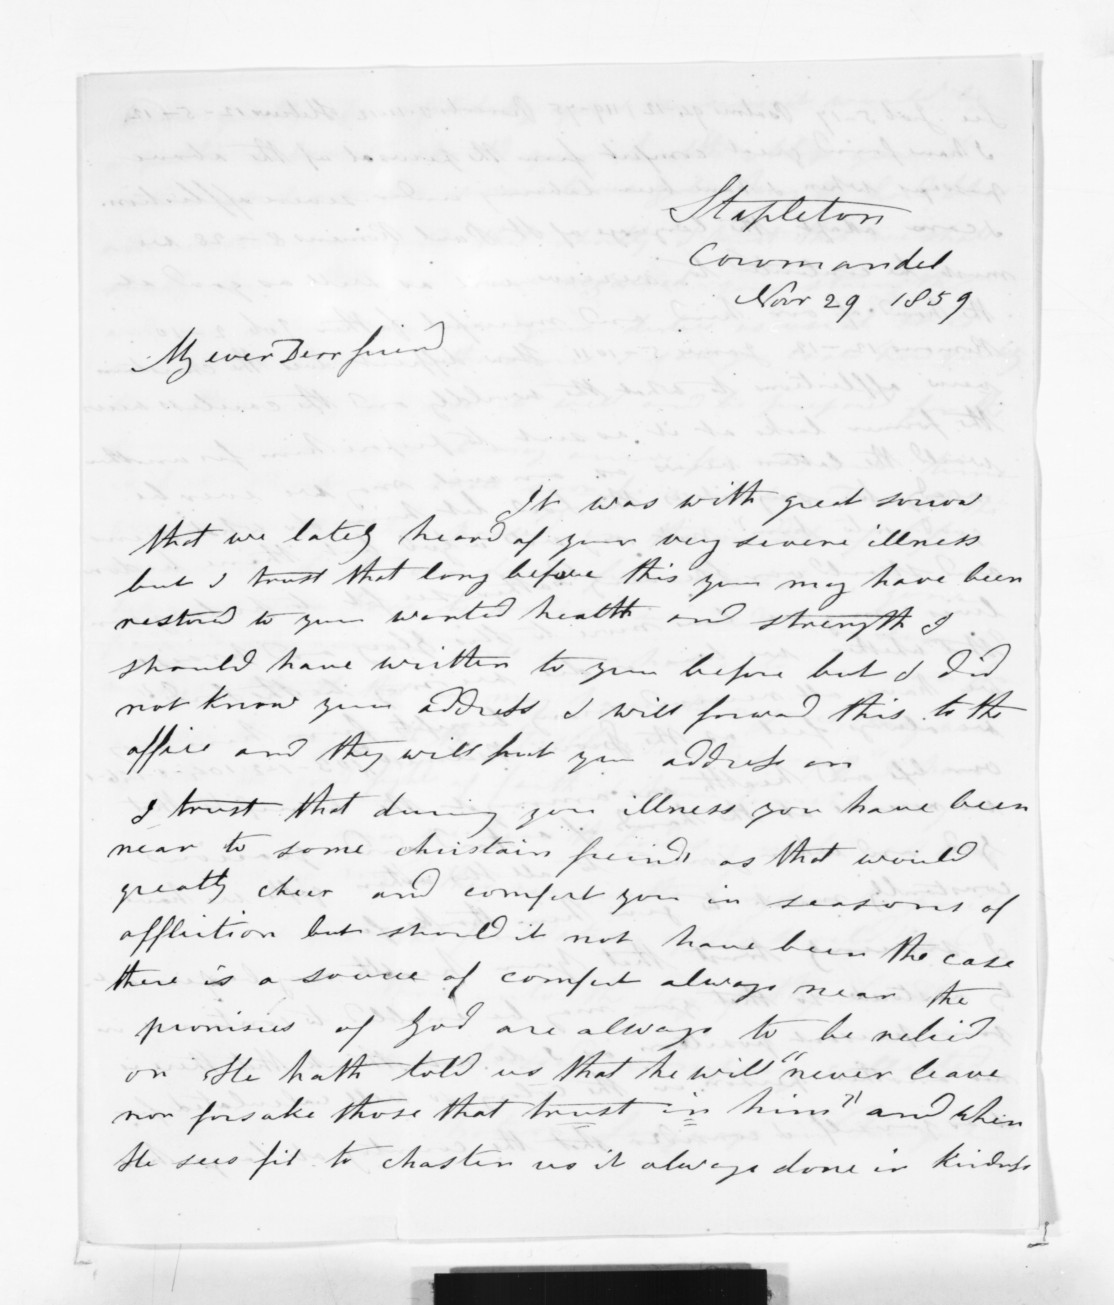 Stapleton
Coromandel
Novr 29 1859
My ever Dear friend
It was with great sorrow
that we lately heard of your very severe illness
but I trust that long before this you may have been
restored to your wanted health and strength I
should have written to you before but I did
not know your address I will forward this to the
office and they will put your address on
I trust that during your illness you have been
near to some christain freinds as that would
greatly cheer and comfort you in seasons of
affliction but should it not have been the case
there is a source of comfort always near the
promises of God are always to be relied
on He hath told us that he will "never leave
nor forsake those that trust in him" and when
He sees fit to chasten us it always done in kindness